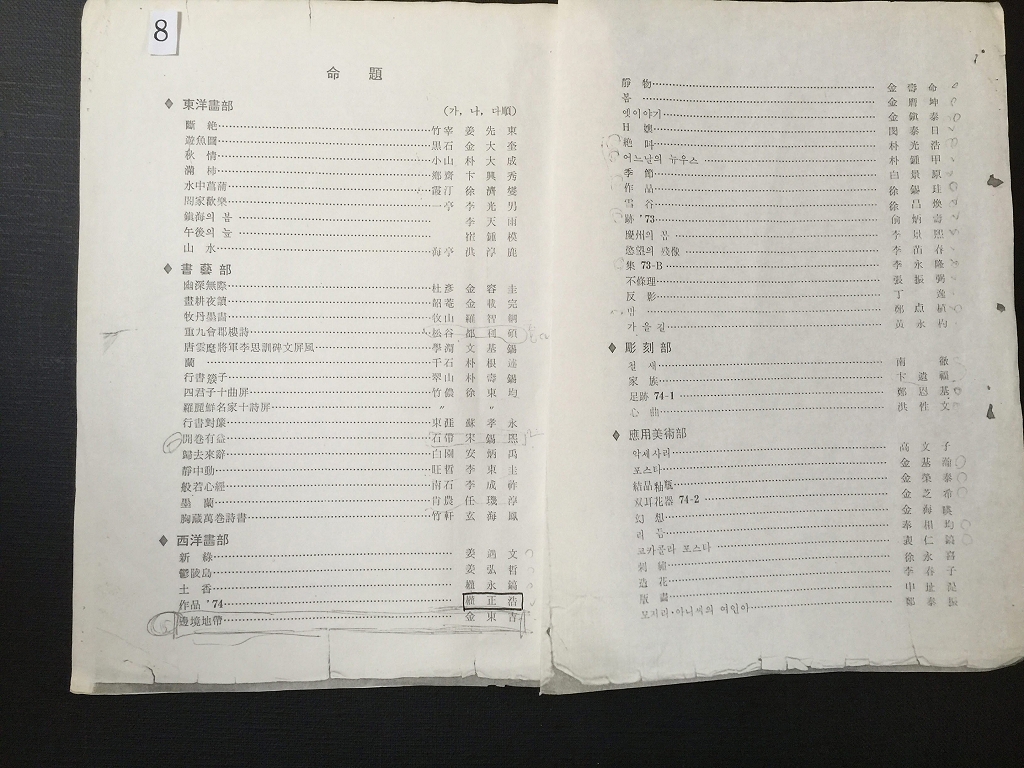 8
命 題
◆ 東洋畵部
(가, 나, 다順)
斷 絶 竹宰 姜先東
遊魚圖 黒石 金大奎
秋 情 小山 朴大成
滿 柿 鄕齋 卞興秀
水中菖蒲 霞汀 徐濟燮
閤家歡樂 一亭 李光男
鎭海의 봄 李天雨
午後의 뜰 崔鍾模
山 水 海亭 洪淳鹿
◆ 書藝部
幽深無際 杜彦 金容圭
晝耕夜讀 韶菴 金載完
牧丹墨畵 牧山 羅智鋼
重九會郡樓詩 松谷 都利碩
唐雲麾將軍李思訓碑文屛風 學渭 文基錫
蘭 千石 朴根述
行書簇子 翠山 朴壽錫
四君子十曲屛 竹儂 徐東均
羅麗鮮名家十詩屛 〃 〃
行書對簾 東涯 蘇孝永
開卷有益 石帶 宋錫熙
歸去來辭 白園 安炳禹
靜中動 旺哲 李東圭
般若心經 南石 李成祚
墨 蘭 肯農 任璣淳
胸藏萬卷詩書 竹軒 玄海鳳
◆ 西洋畵部
新 綠 姜 文
鬱陵島 姜弘哲
土 香 權永鎬
作品 '74 權正浩
邊境地帶 金東吉
靜 物 金壽命
봄 金 坤
옛이야기 金鎭泰
H 孃 閔泰日
絶 叫 朴光浩
어느날의 뉴우스 朴鍾甲
季 節 白景原
作 品 徐錫珪
雪 谷 徐昌煥
跡 '73 兪炳壽
慶州의 봄 李 熙
慾望의 殘像 李苗春
集 73-B 李永隆
不條理 張振弼
反 影 丁 逸
밤 鄭点植
가을길 黃永杓
◆ 彫刻部
철 새 南 徹
家 族 卞遺福
足跡 74-1 鄭恩基
心 曲 洪性文
◆ 應用美術部
악세사리 高文子
포스타 金基瀚
結晶釉甁 金榮泰
双耳花器 74-2 金芝希
幻 想 金海暎
리 듬 奉相均
코카콜라 포스타 裵仁鎬
刺 繡 徐永喜
造 花 李春子
版 畵 申址湜
모자리·아니씨의 여인아 鄭泰振